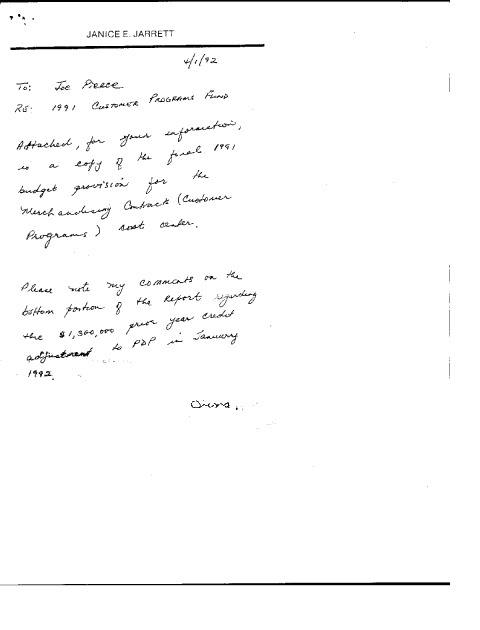 JANICE E. JARRETT
4/1/92
To: Joe Pierce
RE: 1991 CUSTOMER PROGRAMS FUND
Attached, for your information,
is a copy of the final 1991
budget provision for the
Merchandising Contracts (Customer
Programs) cost center.
Please note my comments on the
bottom portion of the Report regarding
the $1,300,000 prior year credit
adjustment to PDP in January
1992.